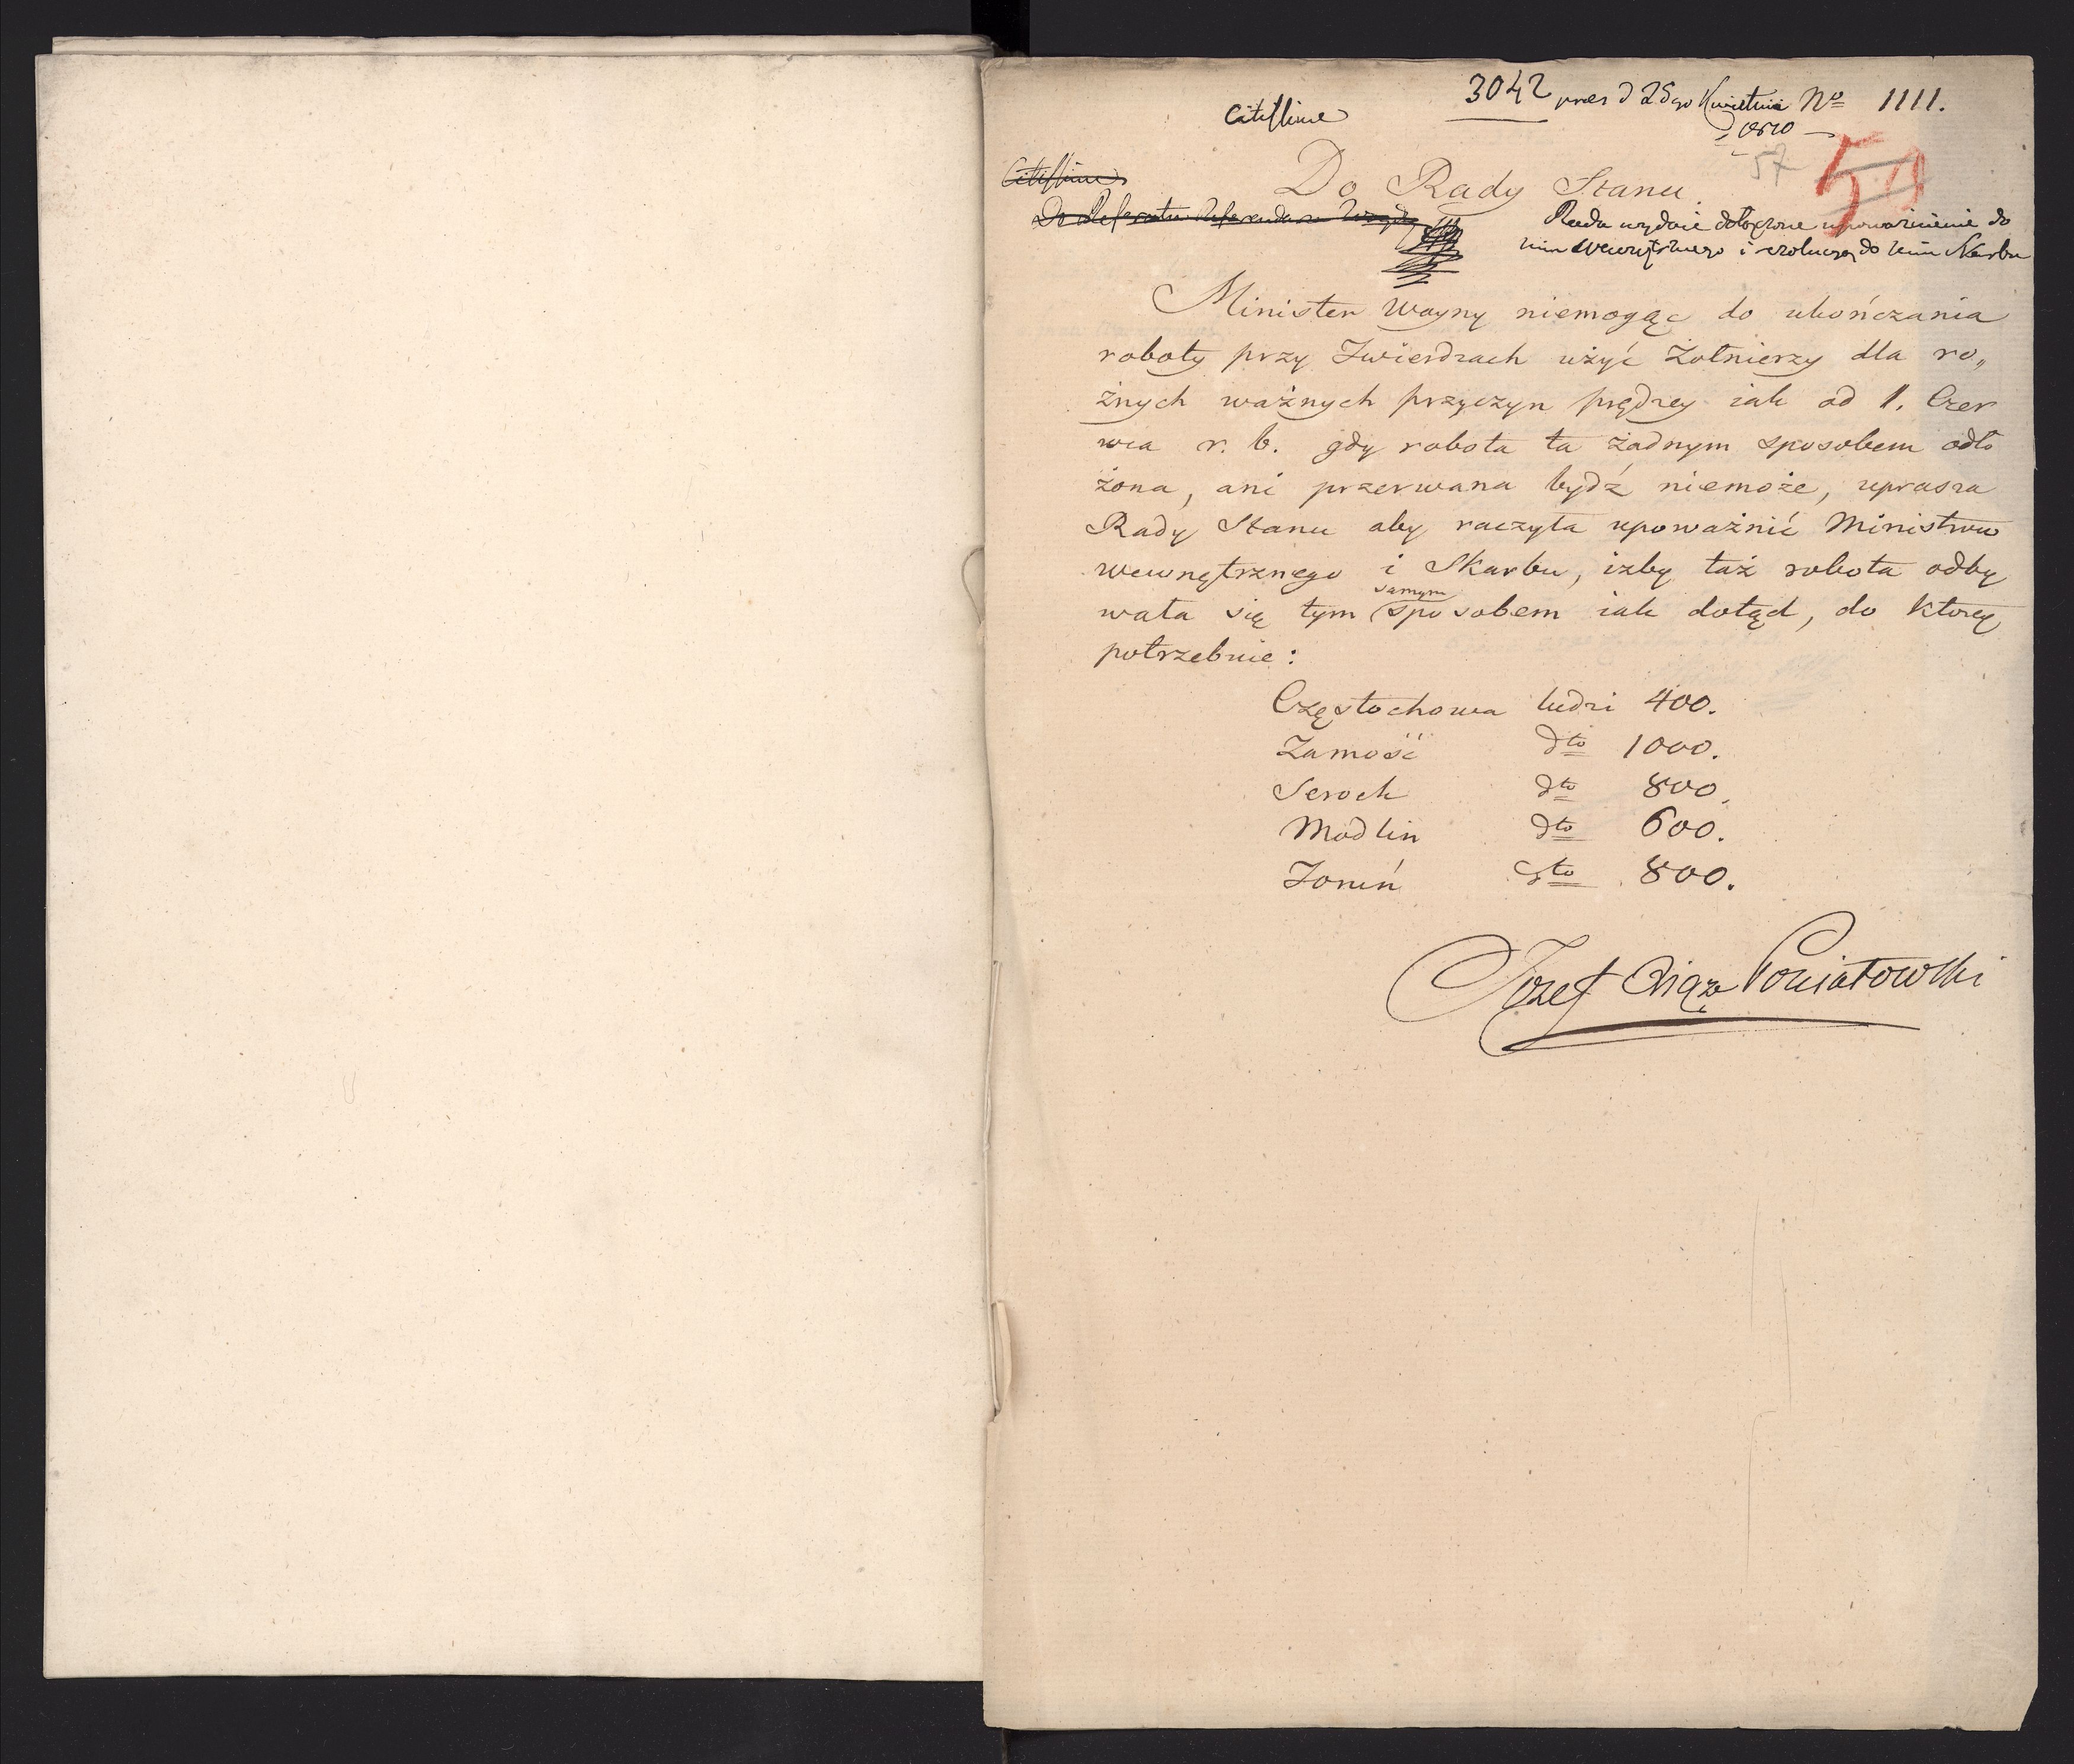 3042 pres d 25go Kwietnia No 1111.
1810
Citissime
57
Citissime
Do Rady Stanu.
Do Referatu Referendarza
Rada wydaie dołączone upoważnienie do
Min Wewnętrznego i rezolucyą do Min Skarbu
Minister Woyny niemogąc do ukończania
roboty przy Twierdzach użyć Żołnierzy dla ro„
żnych ważnych przyczyn prędzey iak od 1. Czer
wca r. b. gdy robota ta żadnym sposobem odło
żona, ani przerwana bydź niemoże, uprasza
Rady Stanu aby raczyła upoważnić Ministrów
wewnętrznego i Skarbu, izby taż robota odby
wała się tym samym sposobem iak dotąd, do którey
potrzebuie:
Częstochowa ludzi 400.
Zamość dto 1000.
Serock dto 800.
Modlin dto 600.
Toruń dto 800.
Józef Xiąże Poniatowski